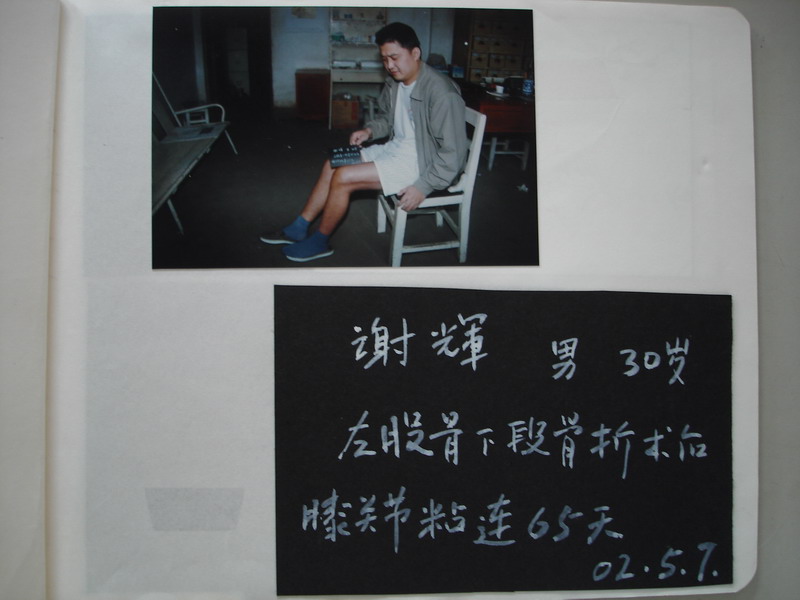 谢輝 男 30岁
左股骨下段骨折术后
膝关节粘连65天
02.5.7.